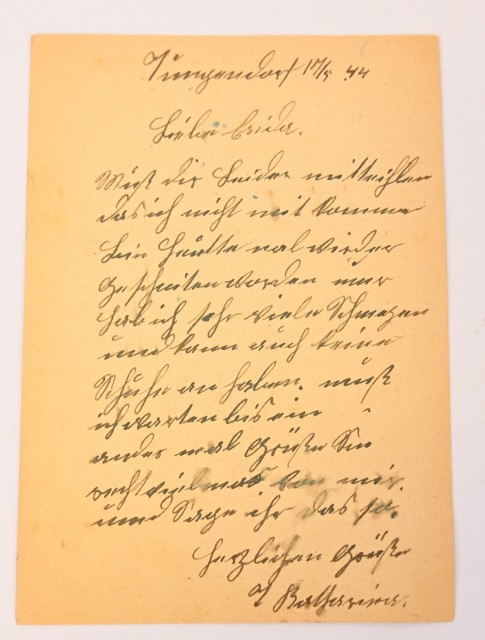 Tungendorf 17/5 44
Liebe Frida.
Muß dir Leider mitteihlen
das ich nicht mit komme
bin heutte mal wieder
geschniten worden nur
hab ich sehr viele Schmezen
und kann auch keine
Schuhe an haben. muß
ich warten bis ein
ander mal Grüße
recht vielmas von mir.
und Sage ihr das
herzlichen Grüße
Katharina.